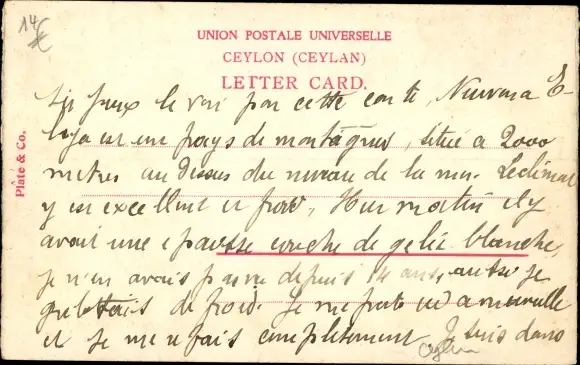 14 €
UNION POSTALE UNIVERSELLE
CEYLON (CEYLAN)
LETTER CARD.
Plâté & Co.
le vois par cette carte, Nuwara E-
lya est un pays de montagnes, situé à 2000
mètres au dessus du niveau de la mer. Le climat
y est excellent et froid, Hier matin il y
avait une épaisse couche de gelée blanche,
je n'en avais pas vu depuis 4 ans, aussi je
grelottais de froid. Je me porte ici à merveille
et je me refais complètement Je suis dans
Ceylan